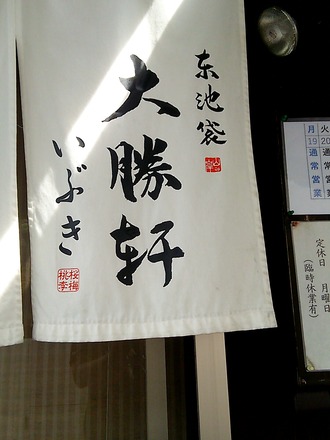 东池袋
大勝軒
いぶき
桜梅
桃李
月 火
19 20
通 通
常 常
営 営
業 業
定休日 月曜日
(臨時休業有)